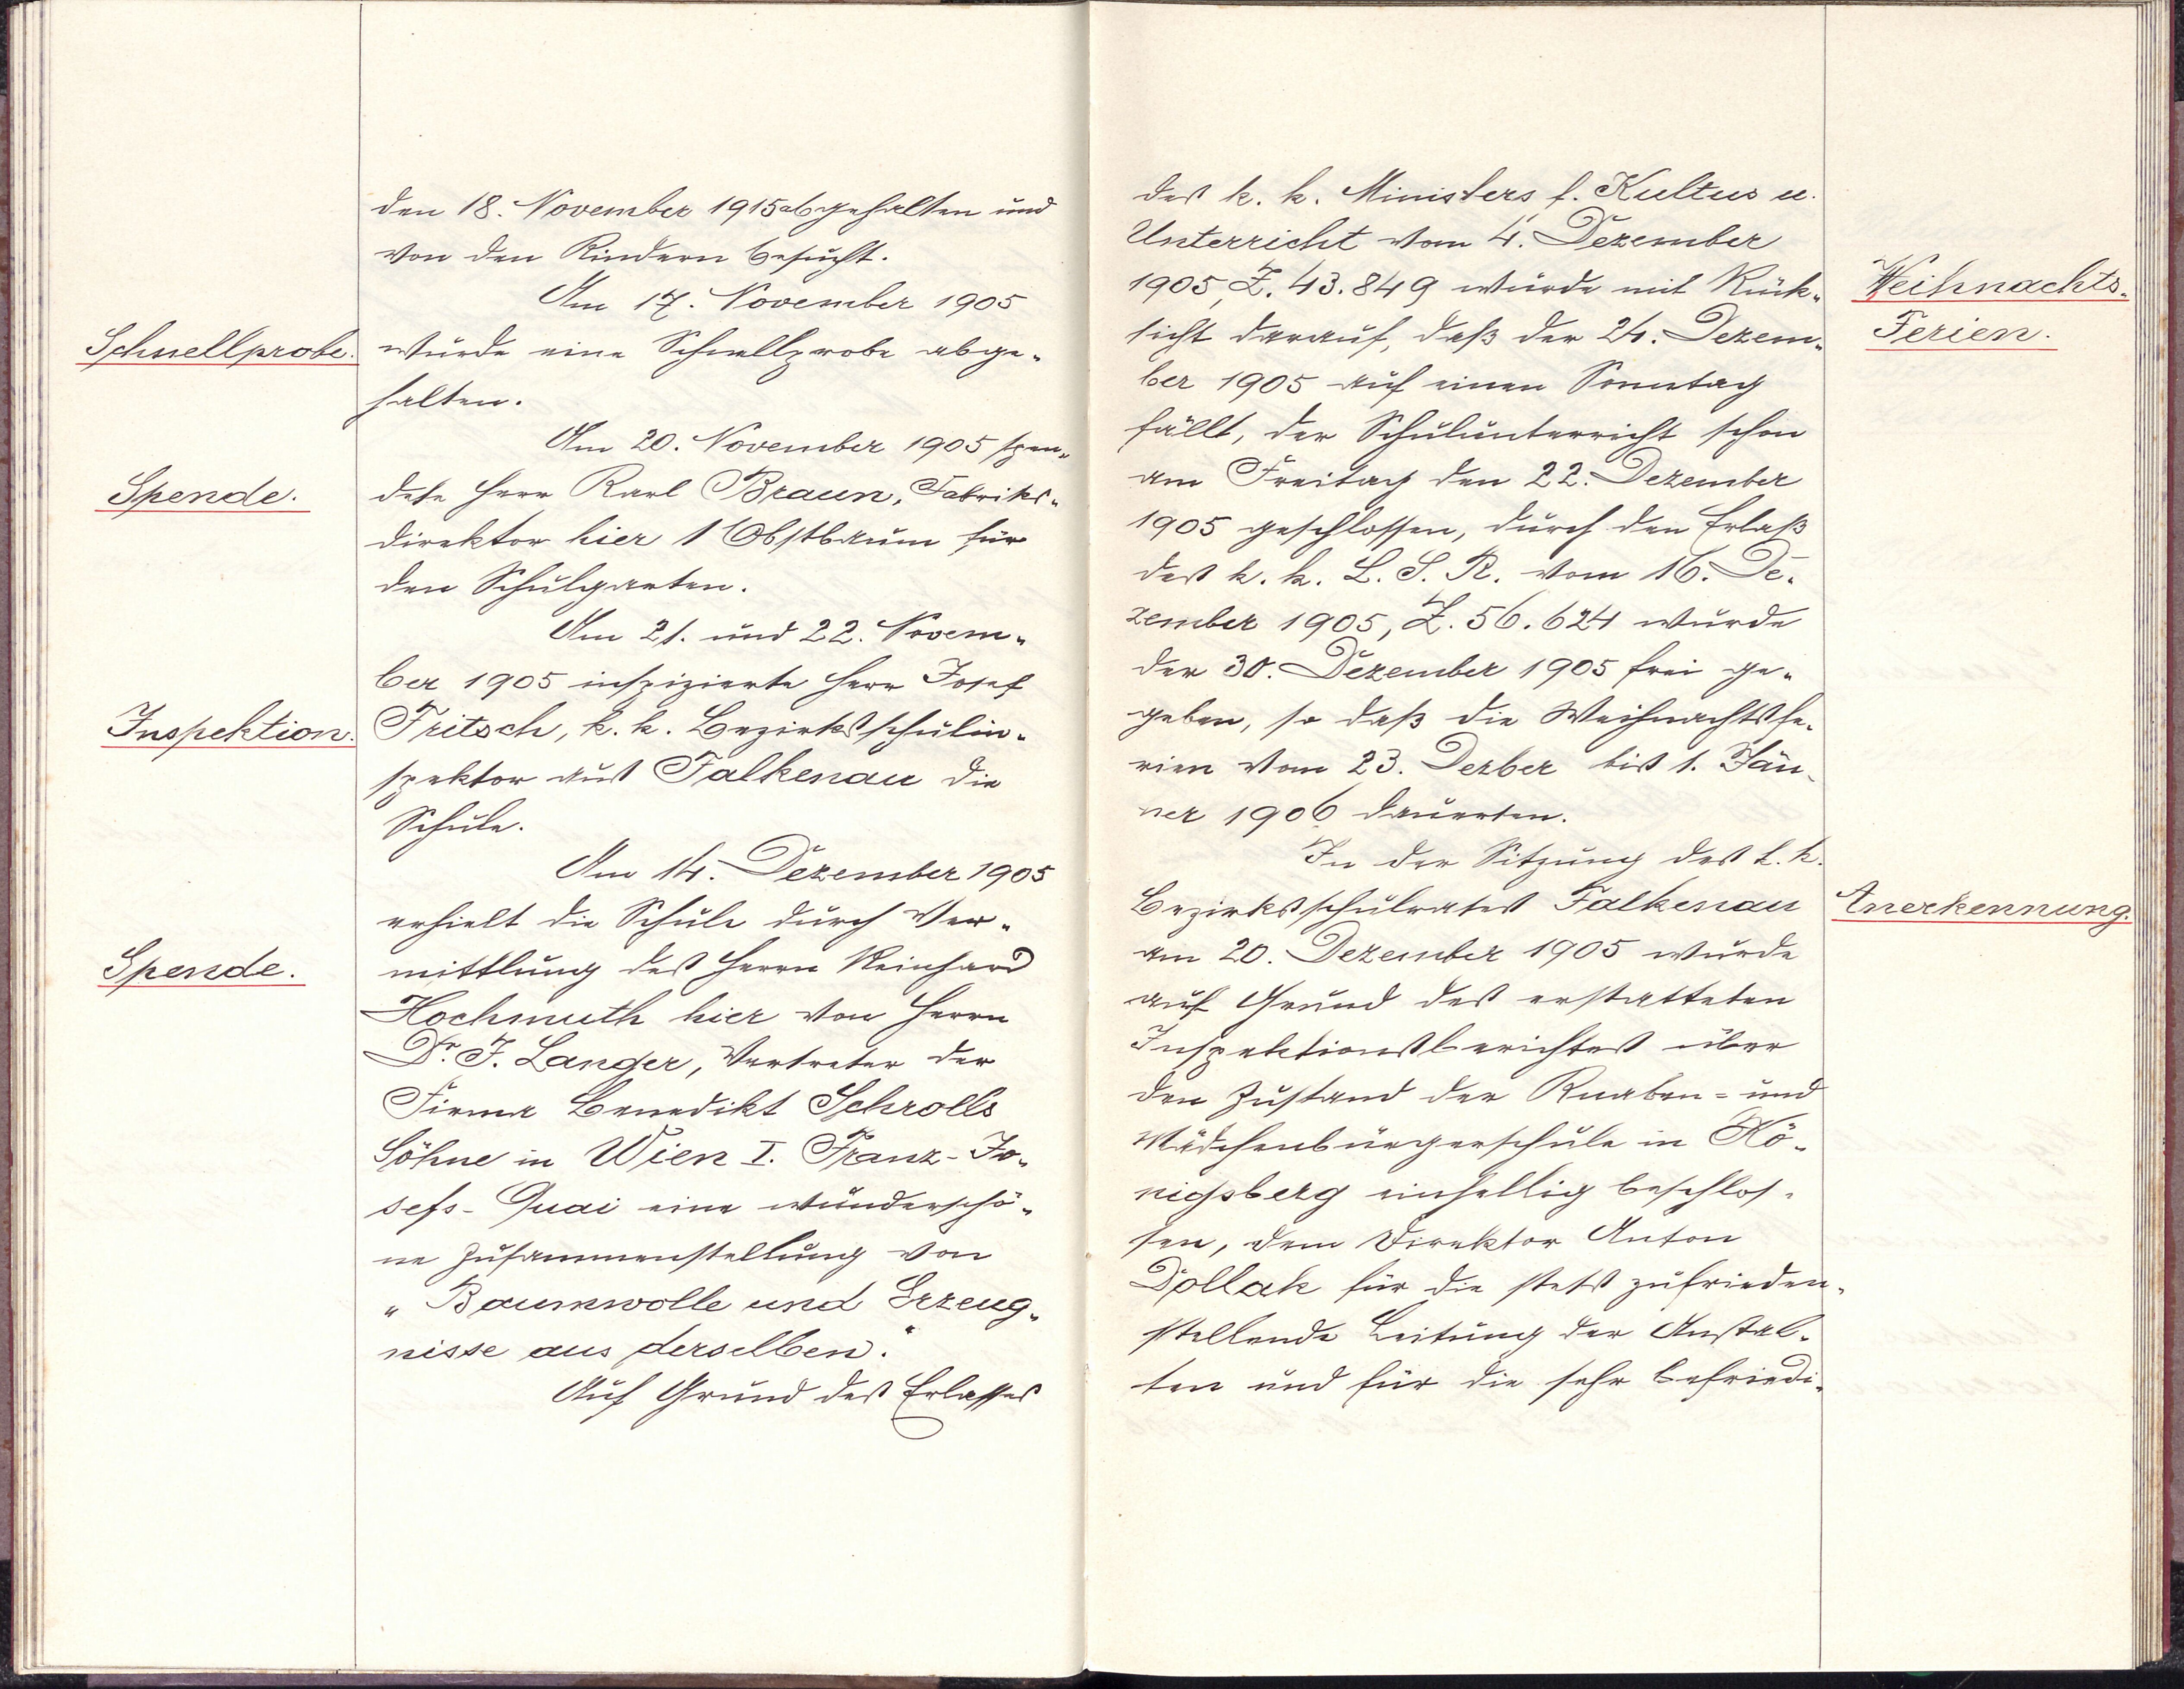 den 18. November 1915 abgehalten und
von den Kindern besucht.
Am 17. November 1905
Schnellprobe. wurde eine Schnellprobe abge-
halten.
Am 20. November 1905 spen-
Spende. dete Herr Karl Braun, Fabriks-
direktor hier 1 Obstbaum für
den Schulgarten.
Am 21. und 22. Novem-
ber 1905 inspizierte Herr Josef
Inspektion. Fritsch, k. k. Bezirksschulin-
spektor aus Falkenau die
Schule.
Am 14. Dezember 1905
erhielt die Schule durch Ver-
Spende. mittlung des Herrn Reinhard
Hochmuth hier von Herrn
Dr. J. Langer, Vertreter der
Firma Benedikt Schrolls
Söhne in Wien I. Franz-Jo-
sefs-Quai eine wunderschö-
ne Zusammenstellung von
"Baumwolle und Erzeug-
nisse aus derselben."
Auf Grund des Erlasses
des k. k. Ministers f. Kultus u.
Unterricht vom 4. Dezember
1905, Z. 43.849 wurde mit Rück- Weihnachts-
sicht darauf, daß der 24. Dezem- Ferien.
ber 1905 auf einen Sonntag
fällt, der Schulunterricht schon
am Freitag den 22. Dezember
1905 geschlossen, durch den Erlaß
des k. k. L. S. R. vom 16. De-
zember 1905, Z. 56.624 wurde
der 30. Dezember 1905 frei ge-
geben, so daß die Weihnachtsfe-
rien vom 23. Dezber bis 1. Jän-
ner 1906 dauerten.
In der Sitzung des k. k.
Bezirksschulrates Falkenau Anerkennung.
am 20. Dezember 1905 wurde
auf Grund des erstatteten
Inspektionsberichtes über
den Zustand der Knaben- und
Mädchenbürgerschule in Kö-
nigsberg einhellig beschlos-
sen, dem Direktor Anton
Dollak für die stets zufrieden-
stellende Leitung der Anstal-
ten und für die sehr befriedi-